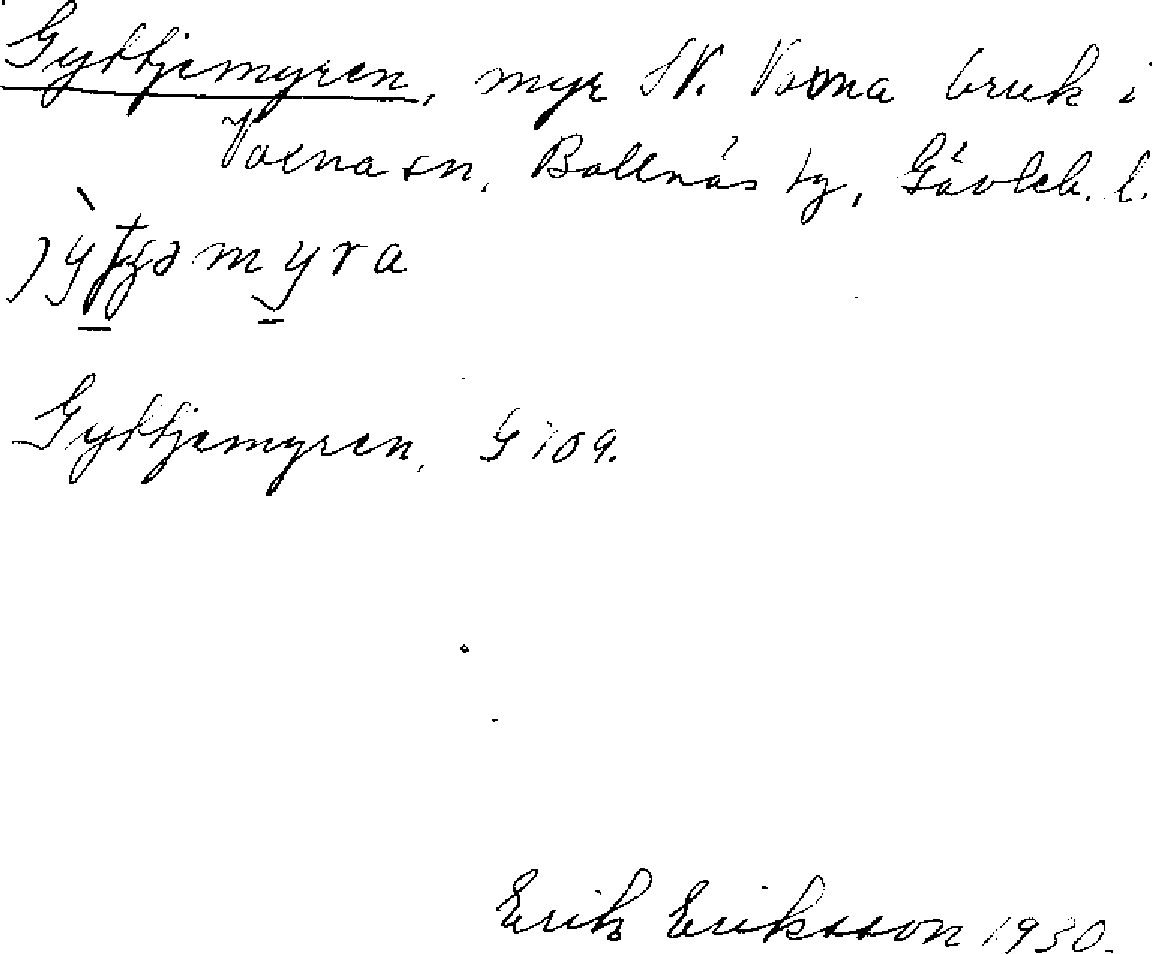 Gyttjemyren, myr SV. Voxna bruk i
Voxna sn, Bollnäs tg, Gävleb. l.
Gyttjemyren, G 109.
Erik Eriksson 1930.